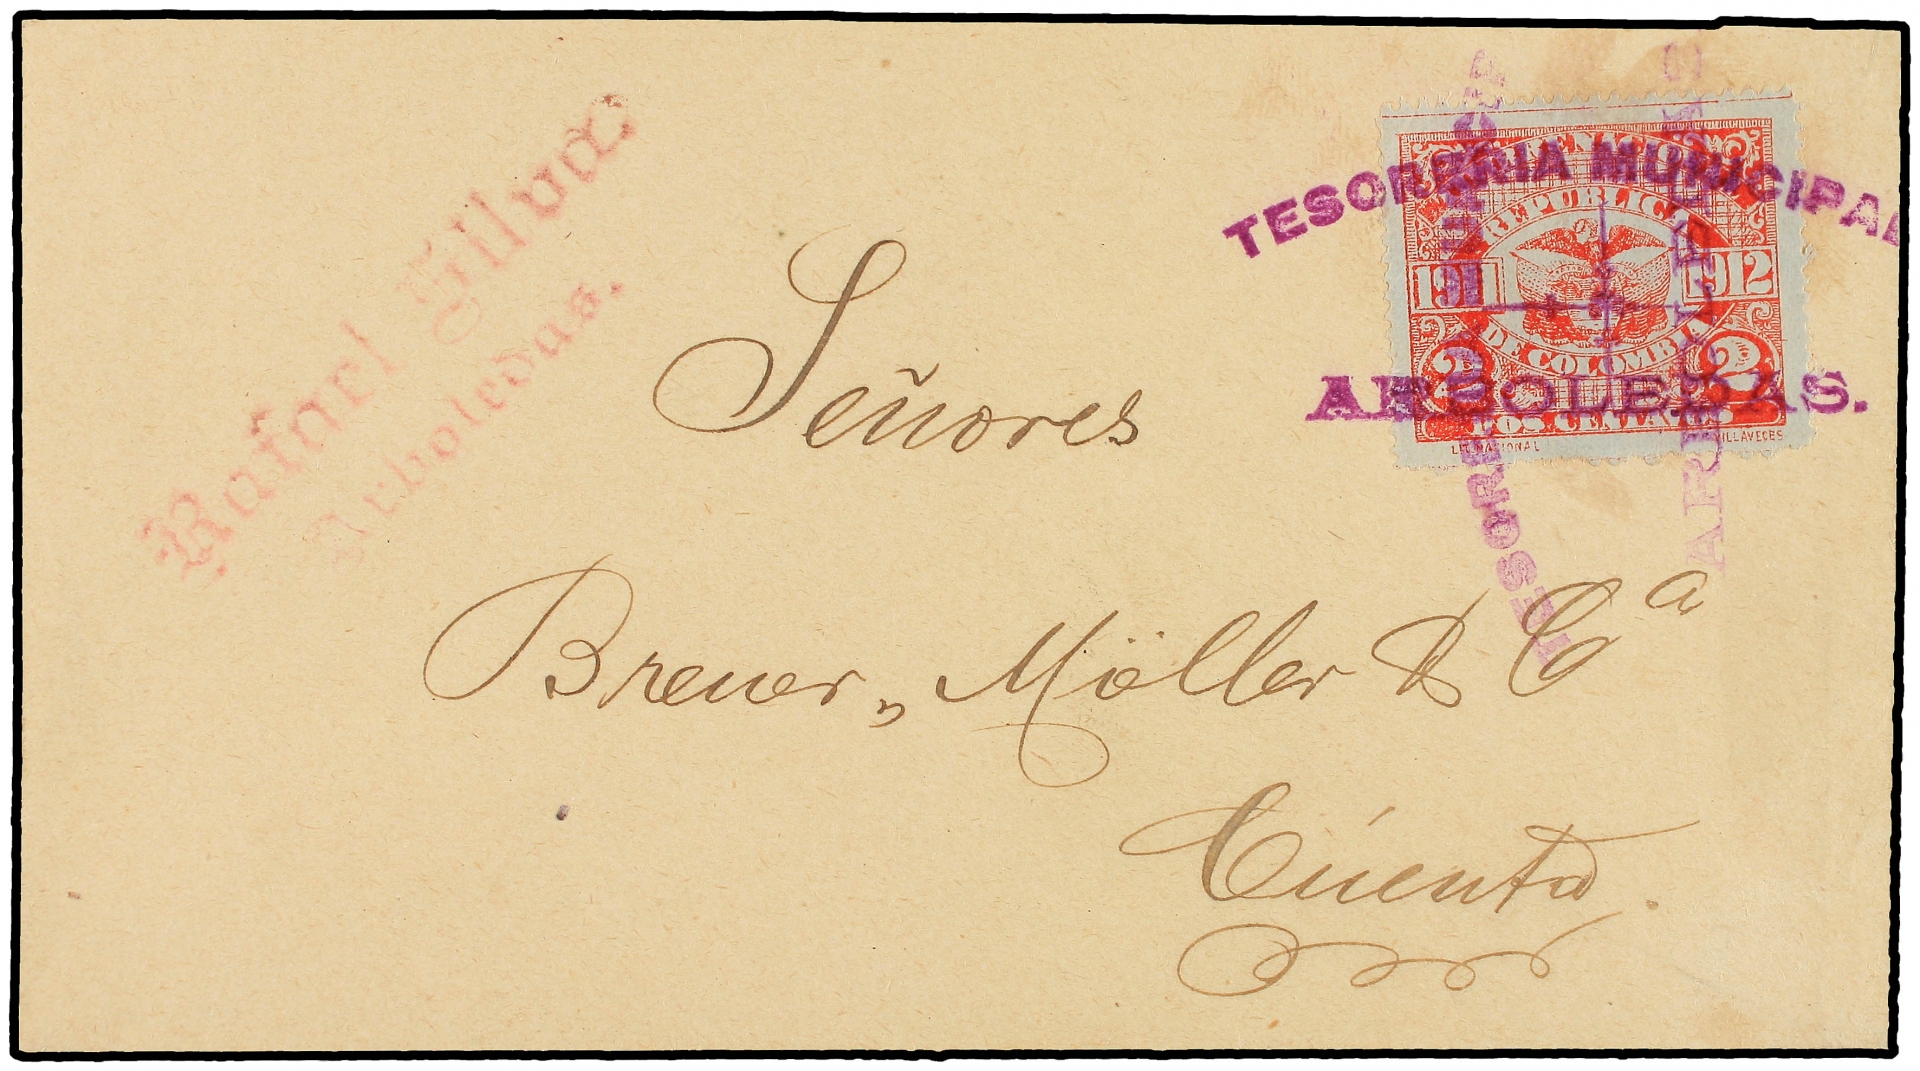 Rafael Gilva
Arboledas.
TESORERIA MUNICIPAL
ARBOLEDAS.
TIMBRE NACIONAL
REPUBLICA
1911 1912
DE COLOMBIA
2 2
DOS CENTAVOS
LIT. NACIONAL VILLAVECES
Señores
Breuer, Möller & Cª
Cúcuta.